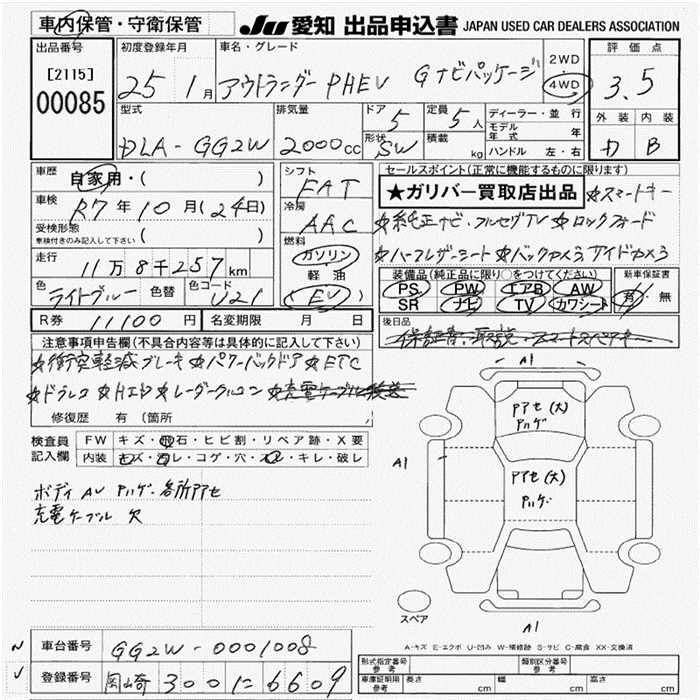 車内保管・守衛保管
JU 愛知 出品申込書 JAPAN USED CAR DEALERS ASSOCIATION
出品番号
[2115]
00085
初度登録年月
25 1月
車名・グレード
アウトランダーPHEV Gナビパッケージ
2WD
4WD
評価点
3.5
外装 内装
B
型式
DLA-GG2W
排気量
2000cc
ドア
5
形状
SW
定員
5人
積載
kg
ディーラー・並行
モデル年式 年
ハンドル 左・右
車歴
自家用・( )
車検
R7年10月(24日)
受検形態
車検付きのみ記入して下さい ( )
走行
11万8千257km
色
ライトブルー
色替
色コード
U21
シフト
FAT
冷房
AAC
燃料
ガソリン
軽油
(EV)
セールスポイント(正常に機能するものに限ります)
★ガリバー買取店出品 ☆スマートキー
☆純正ナビ・フルセグTV ☆ロックフォード
☆ハーフレザーシート ☆バックカメラ サイドカメラ
装備品(純正品に限り○をつけてください)
PS PW エアB AW
SR ナビ TV カワシート
新車保証書
有・無
R券 11100円
名変期限 月 日
後日品
保証書、取説・スマートスペアキー
注意事項申告欄(不具合内容等は具体的に記入して下さい)
☆衝突軽減ブレーキ ☆パワーバックドア ☆ETC
☆ドラレコ ☆レーダークルコン ☆充電ケーブル
修復歴 有 (箇所
検査員記入欄
FW キズ・飛石・ヒビ割・リペア跡・X要
内装 キズ・汚レ・コゲ・穴・スレ・キレ・破レ
ボディ AU 各所アセ
充電ケーブル 欠
A1
Pアセ(大)
Pハゲ
A1
Pアセ(大)
Pハゲ
スペア
A1
A-キズ E-エクボ U-凹み W-補修跡 S-サビ C-腐食 XX-交換済
車台番号
GG2W-0001008
登録番号
岡崎 300 に 6609
形式指定番号 参考
類別区分番号 参考
車庫証明用 参考 長さ cm 幅 cm 高さ cm